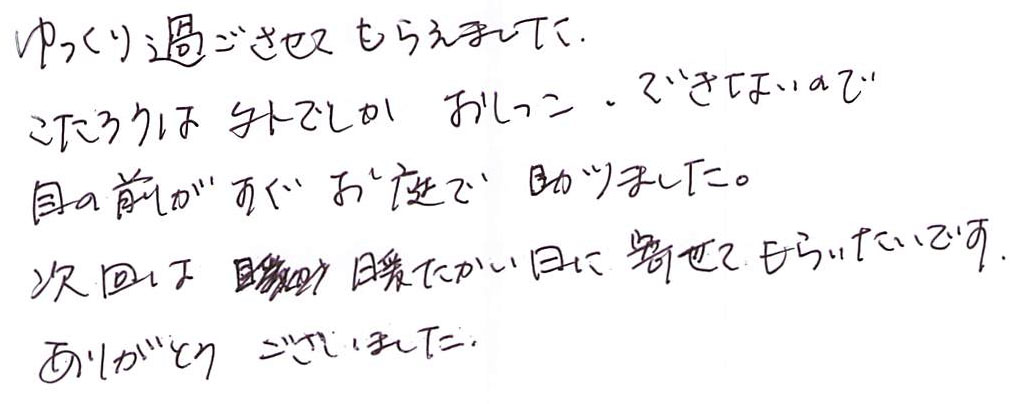 ゆっくり過ごさせてもらえました.
こたろうは外でしかおしっこ・できないので
目の前がすぐお庭で助かりました。
次回は暖たかい日に寄せてもらいたいです.
ありがとうございました.